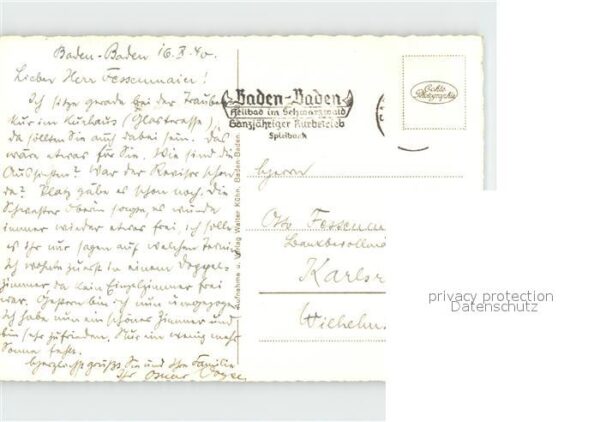 Baden-Baden 16. X. 40.
Lieber Herr Fessenmaier!
Ich sitze gerade bei der Trauben
Kur im Kurhaus (Glasterrasse),
da sollten Sie auch dabei sein. Das
wäre etwas für Sie. Wie sind die
Aussichten? War der Revisor schon
da? Platz gäbe es schon noch. Die
Schwester Oberin sagte, es würde
immer wieder etwas frei, ich solle
es Ihr nur sagen auf welchen Termin
Ich wohnte zuerst in einem Doppel-
zimmer da kein Einzelzimmer frei
war. Gestern bin ich nun umgezogen
Ich habe nun ein schönes Zimmer und
bin sehr zufrieden. Nur ein wenig mehr
Sonne fehlt.
Herzlichst grüßt Sie und Ihre Familie
Ihr Oskar
Aufnahme u. Verlag Walter Kühn, Baden-Baden
Baden-Baden
Heilbad im Schwarzwald
Ganzjähriger Kurbetrieb
Spielbank
Echte
Photographie
Herrn
Otto Fessenm
Bankbevollmä
Karlsr
Wilhelm
privacy protection
Datenschutz